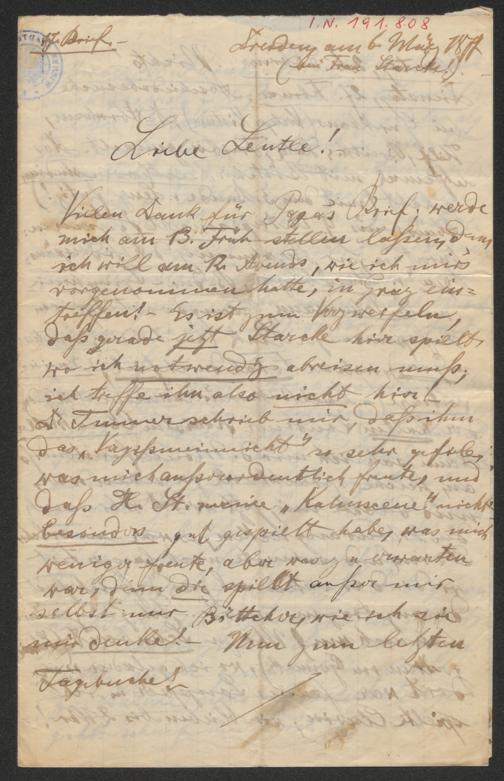 I.N. 191.808
17. Brief.
Dresden, am 6. März 1877
(bei Frau Starcke!)
Liebe Leutle!
Vielen Dank für Papa's Brief; werde
mich am 13. Früh stellen lassen, denn
ich will am 12. Abends, wie ich mir's
vorgenommen hatte, in Graz ein-
treffen! Es ist zum Verzweifeln,
daß gerade jetzt Starcke hier spielt,
wo ich notwendig abreisen muß;
ich treffe ihn also nicht hier!
schrieb mir, daß ihm
das "Vergißmeinnicht" so sehr gefole,
was mich außerordentlich freute, und
daß H. St. meine "Kahnscene" nicht
besonders gut gespielt habe, was mich
weniger freute, aber was zu erwarten
war, denn die spielt außer mir
selbst nur Böttcher, wie ich sie
mir denke! Nun zum letzten
Tagebuche!